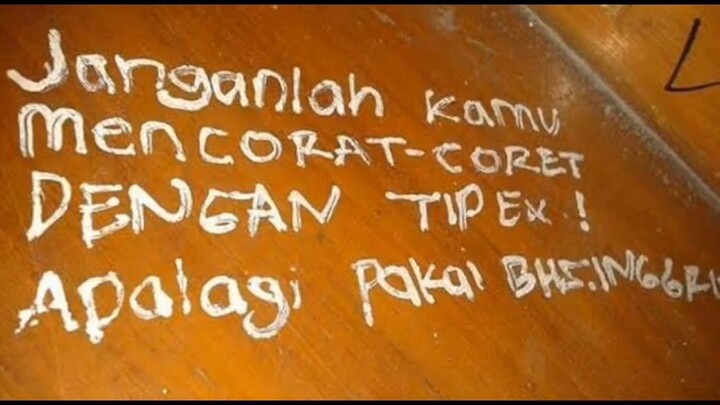 Janganlah kamu
menCORAT-CORET
DENGAN TIPEX.!
Apalagi Pakai BHS.INGGRI